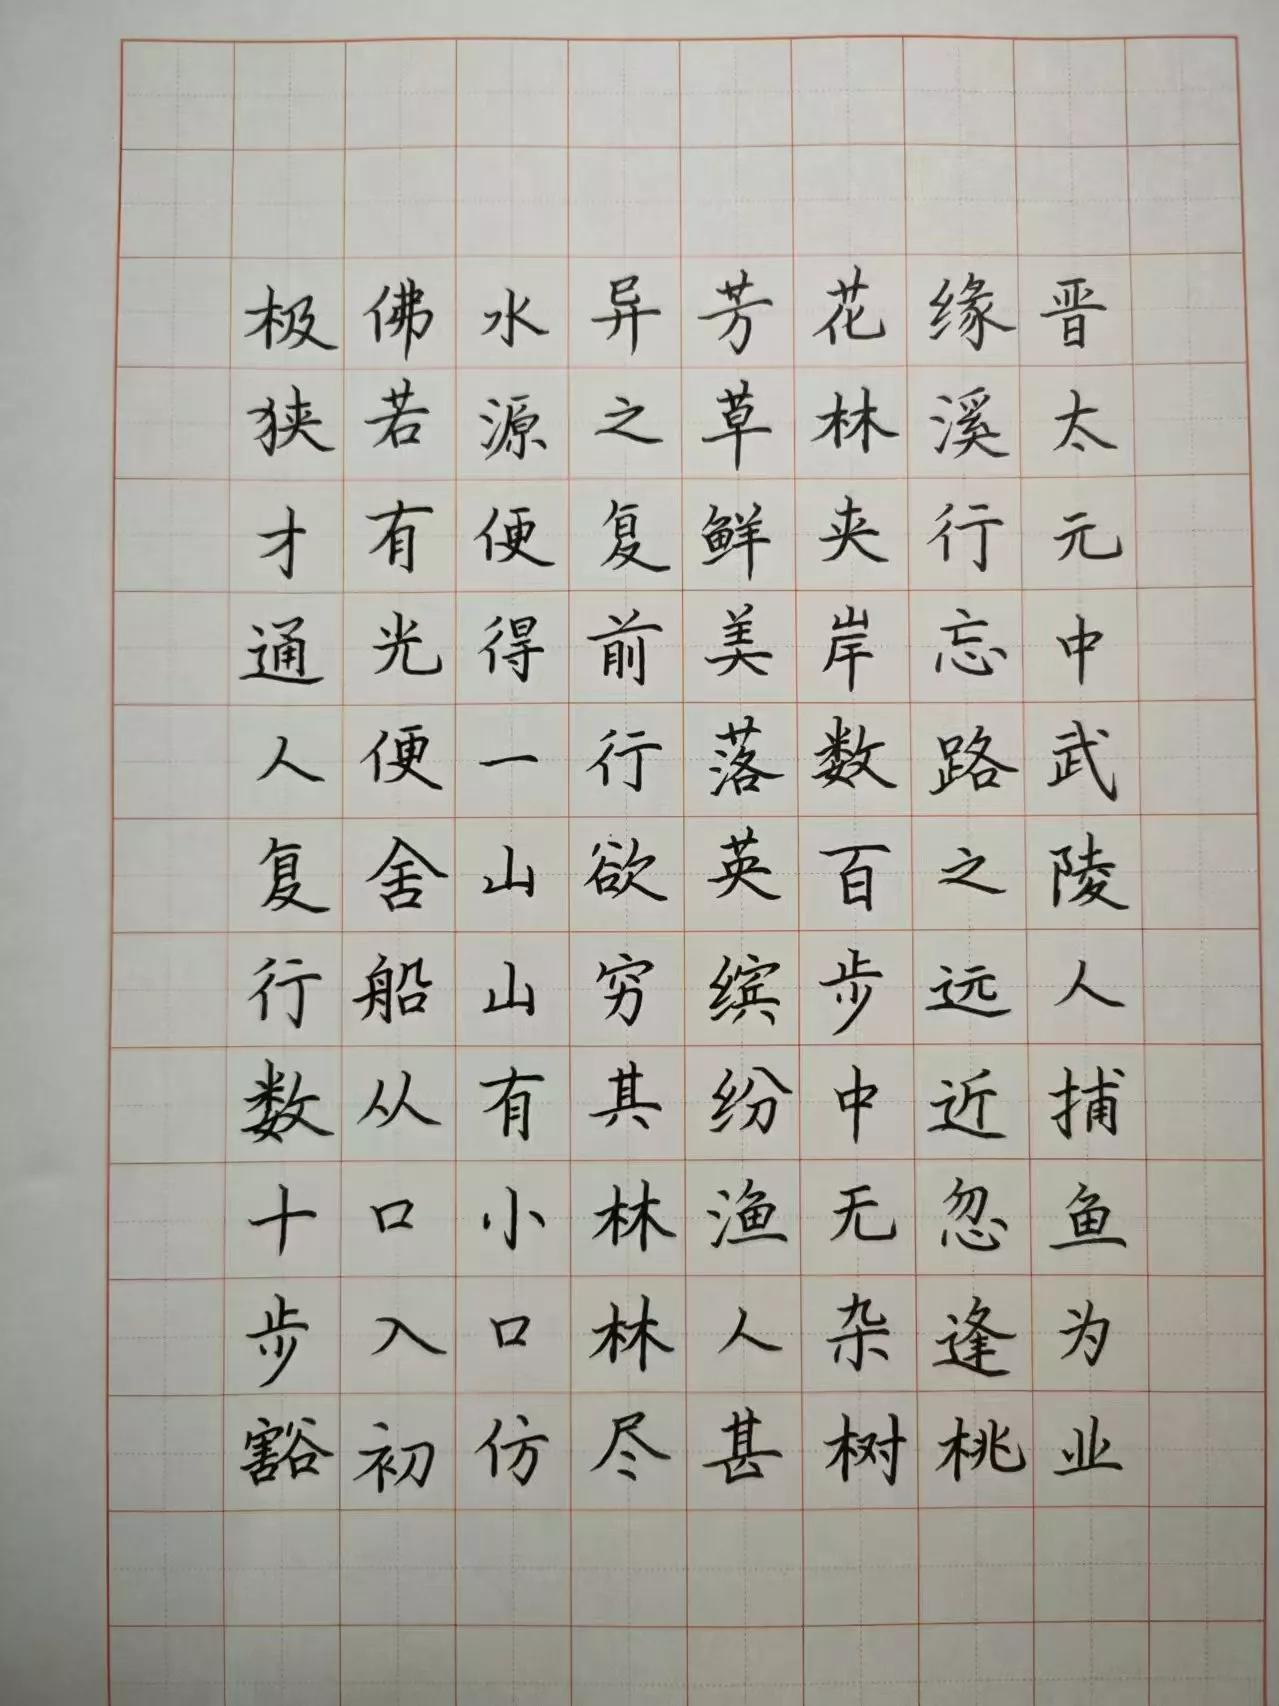 晋太元中武陵人捕鱼为业
缘溪行忘路之远近忽逢桃
花林夹岸数百步中无杂树
芳草鲜美落英缤纷渔人甚
异之复前行欲穷其林林尽
水源便得一山山有小口仿
佛若有光便舍船从口入初
极狭才通人复行数十步豁